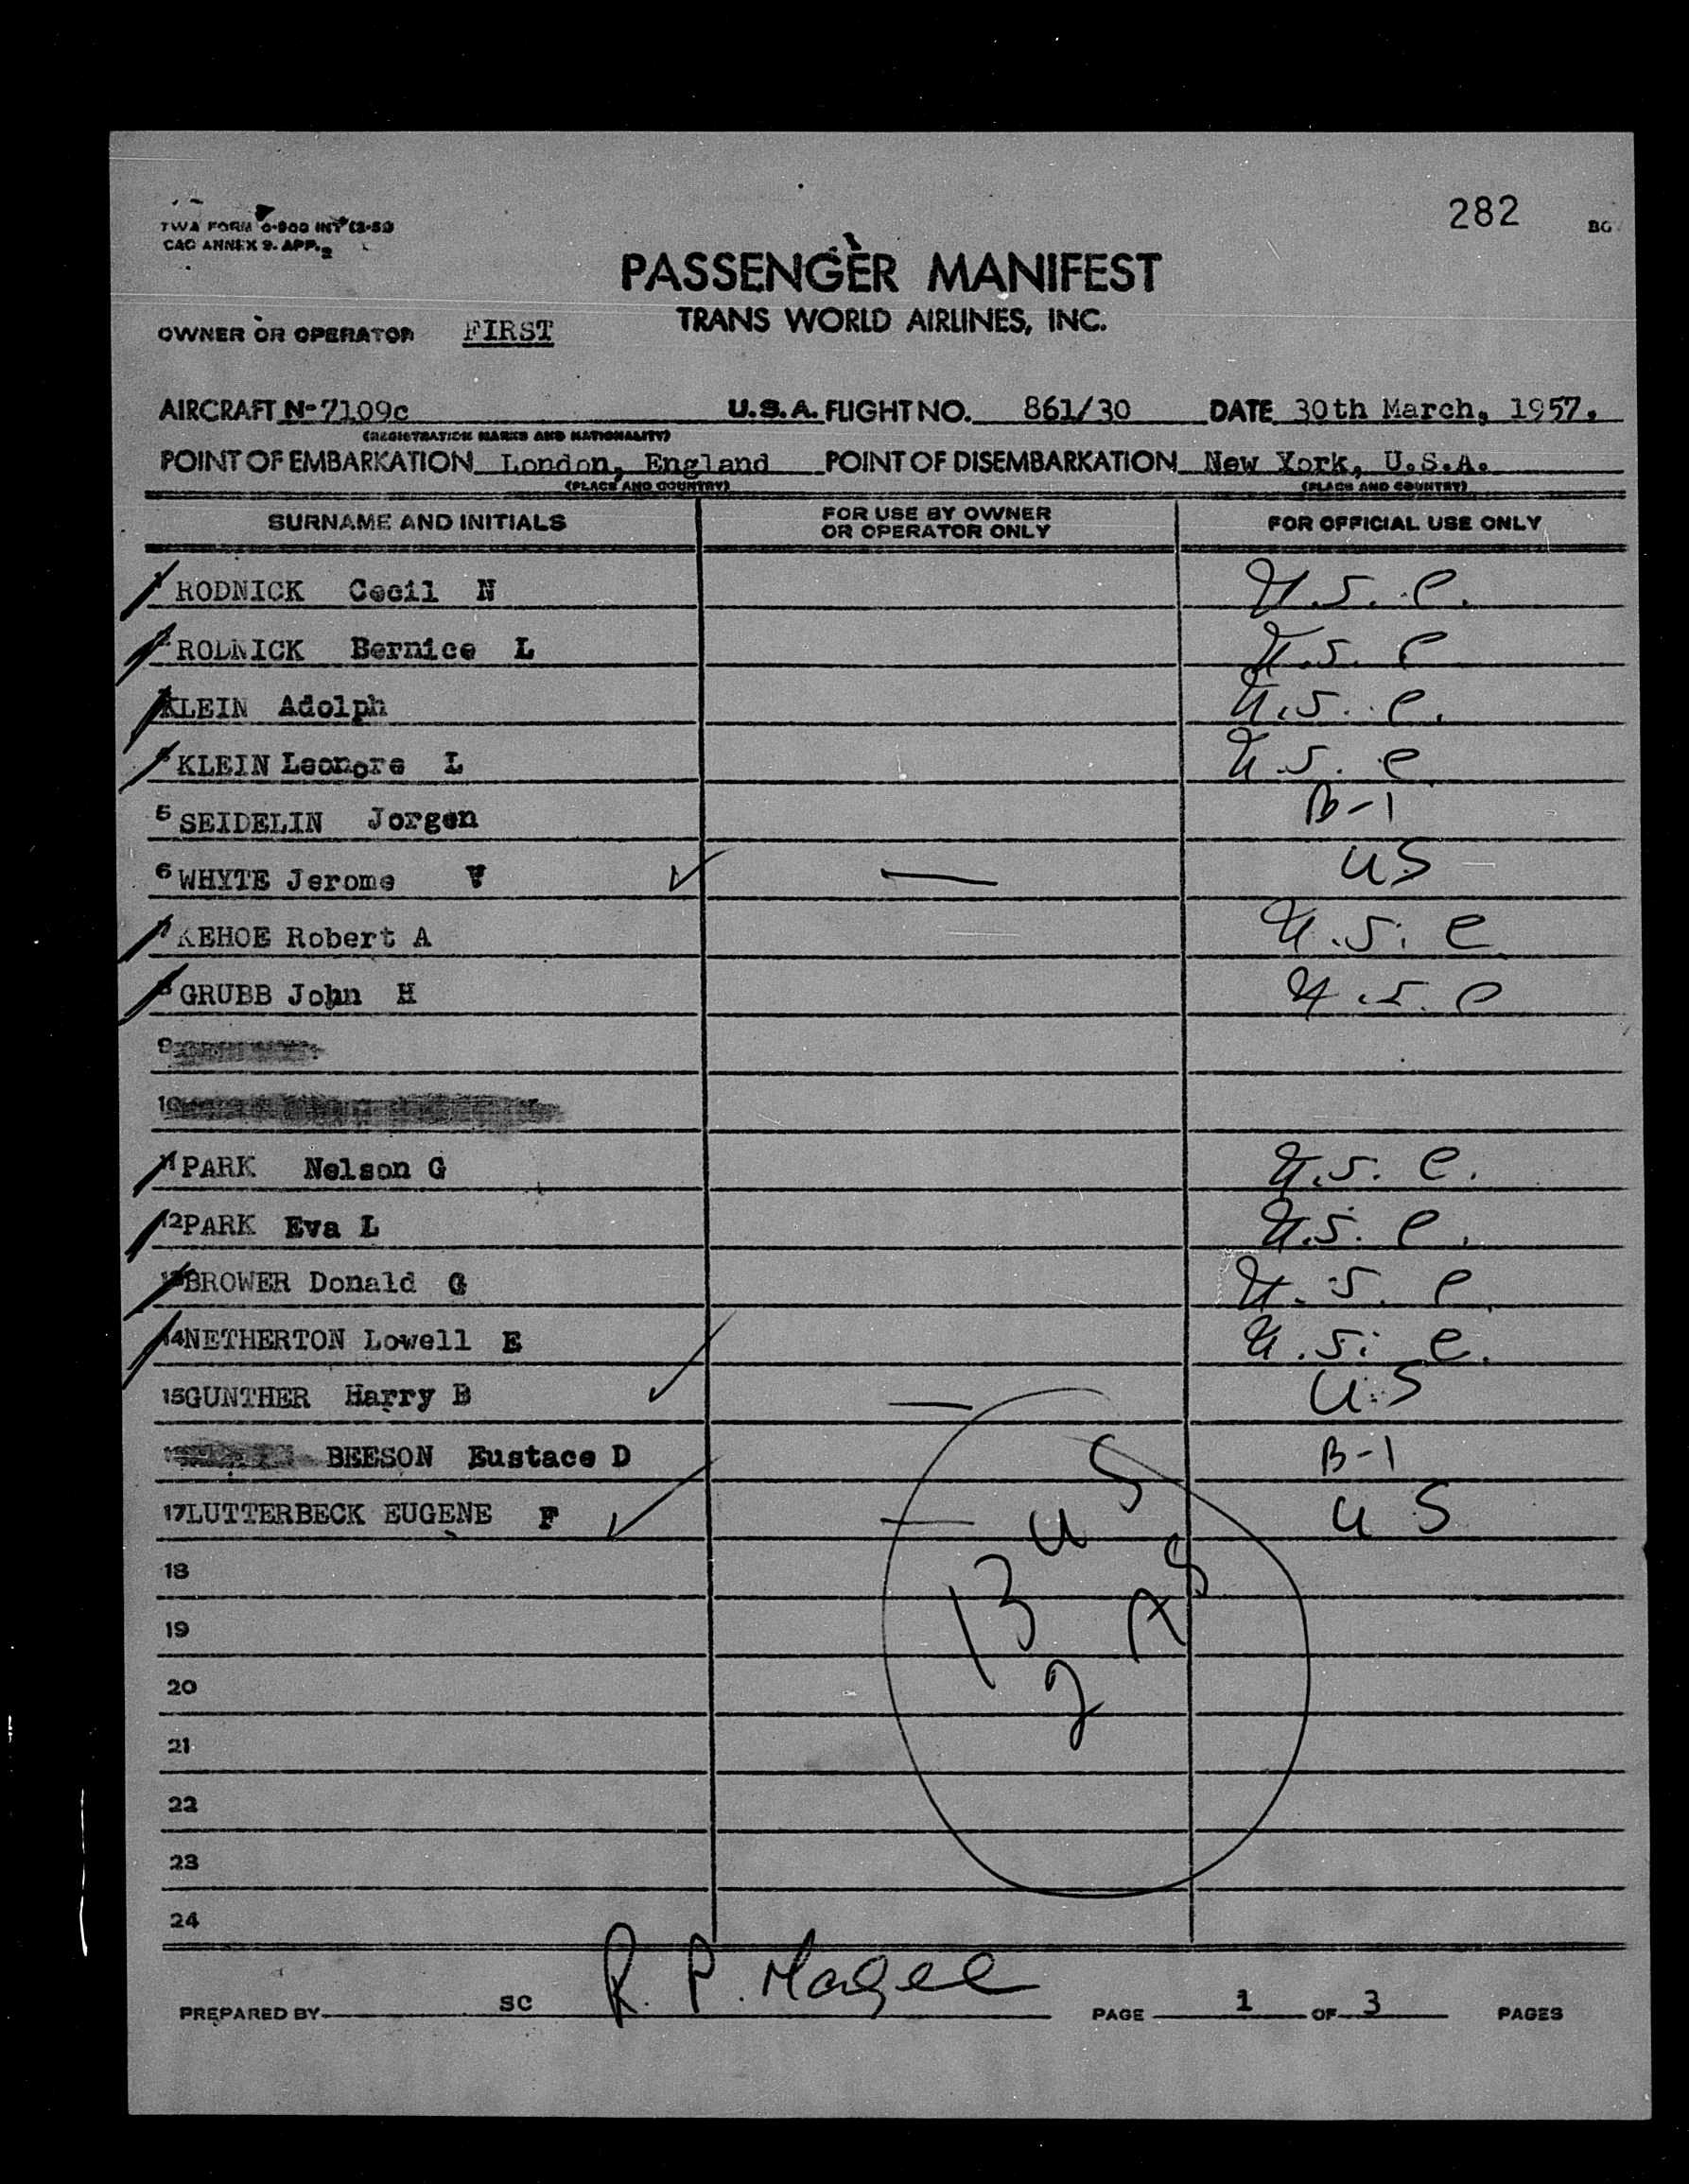 282
BG
TWA FORM O-900 INT
CAO ANNEX 9. APP. 2
PASSENGER MANIFEST
TRANS WORLD AIRLINES, INC.
OWNER OR OPERATOR FIRST
AIRCRAFT N-7109c U.S.A. FLIGHT NO. 861/30 DATE 30th March, 1957.
(REGISTRATION MARKS AND NATIONALITY)
POINT OF EMBARKATION London, England POINT OF DISEMBARKATION New York, U.S.A.
(PLACE AND COUNTRY) (PLACE AND COUNTRY)
SURNAME AND INITIALS FOR USE BY OWNER OR OPERATOR ONLY FOR OFFICIAL USE ONLY
1 RODNICK Cecil N U.S.C.
2 RODNICK Bernice L U.S.C
KLEIN Adolph U.S.C.
4 KLEIN Leonore L U.S.C
5 SEIDELIN Jorgen B-1
6 WHYTE Jerome US
7 KEHOE Robert A U.S.C
8 GRUBB John H U.S.C
9
10
11 PARK Nelson G U.S.C.
12 PARK Eva L U.S.C.
13 BROWER Donald G U.S.C.
14 NETHERTON Lowell E U.S.C.
15 GUNTHER Harry B U.S
BEESON Eustace D B-1
17 LUTTERBECK EUGENE F US
13 US
2 AS
18
19
20
21
22
23
24
PREPARED BY SC R. P. Magee PAGE 1 OF 3 PAGES